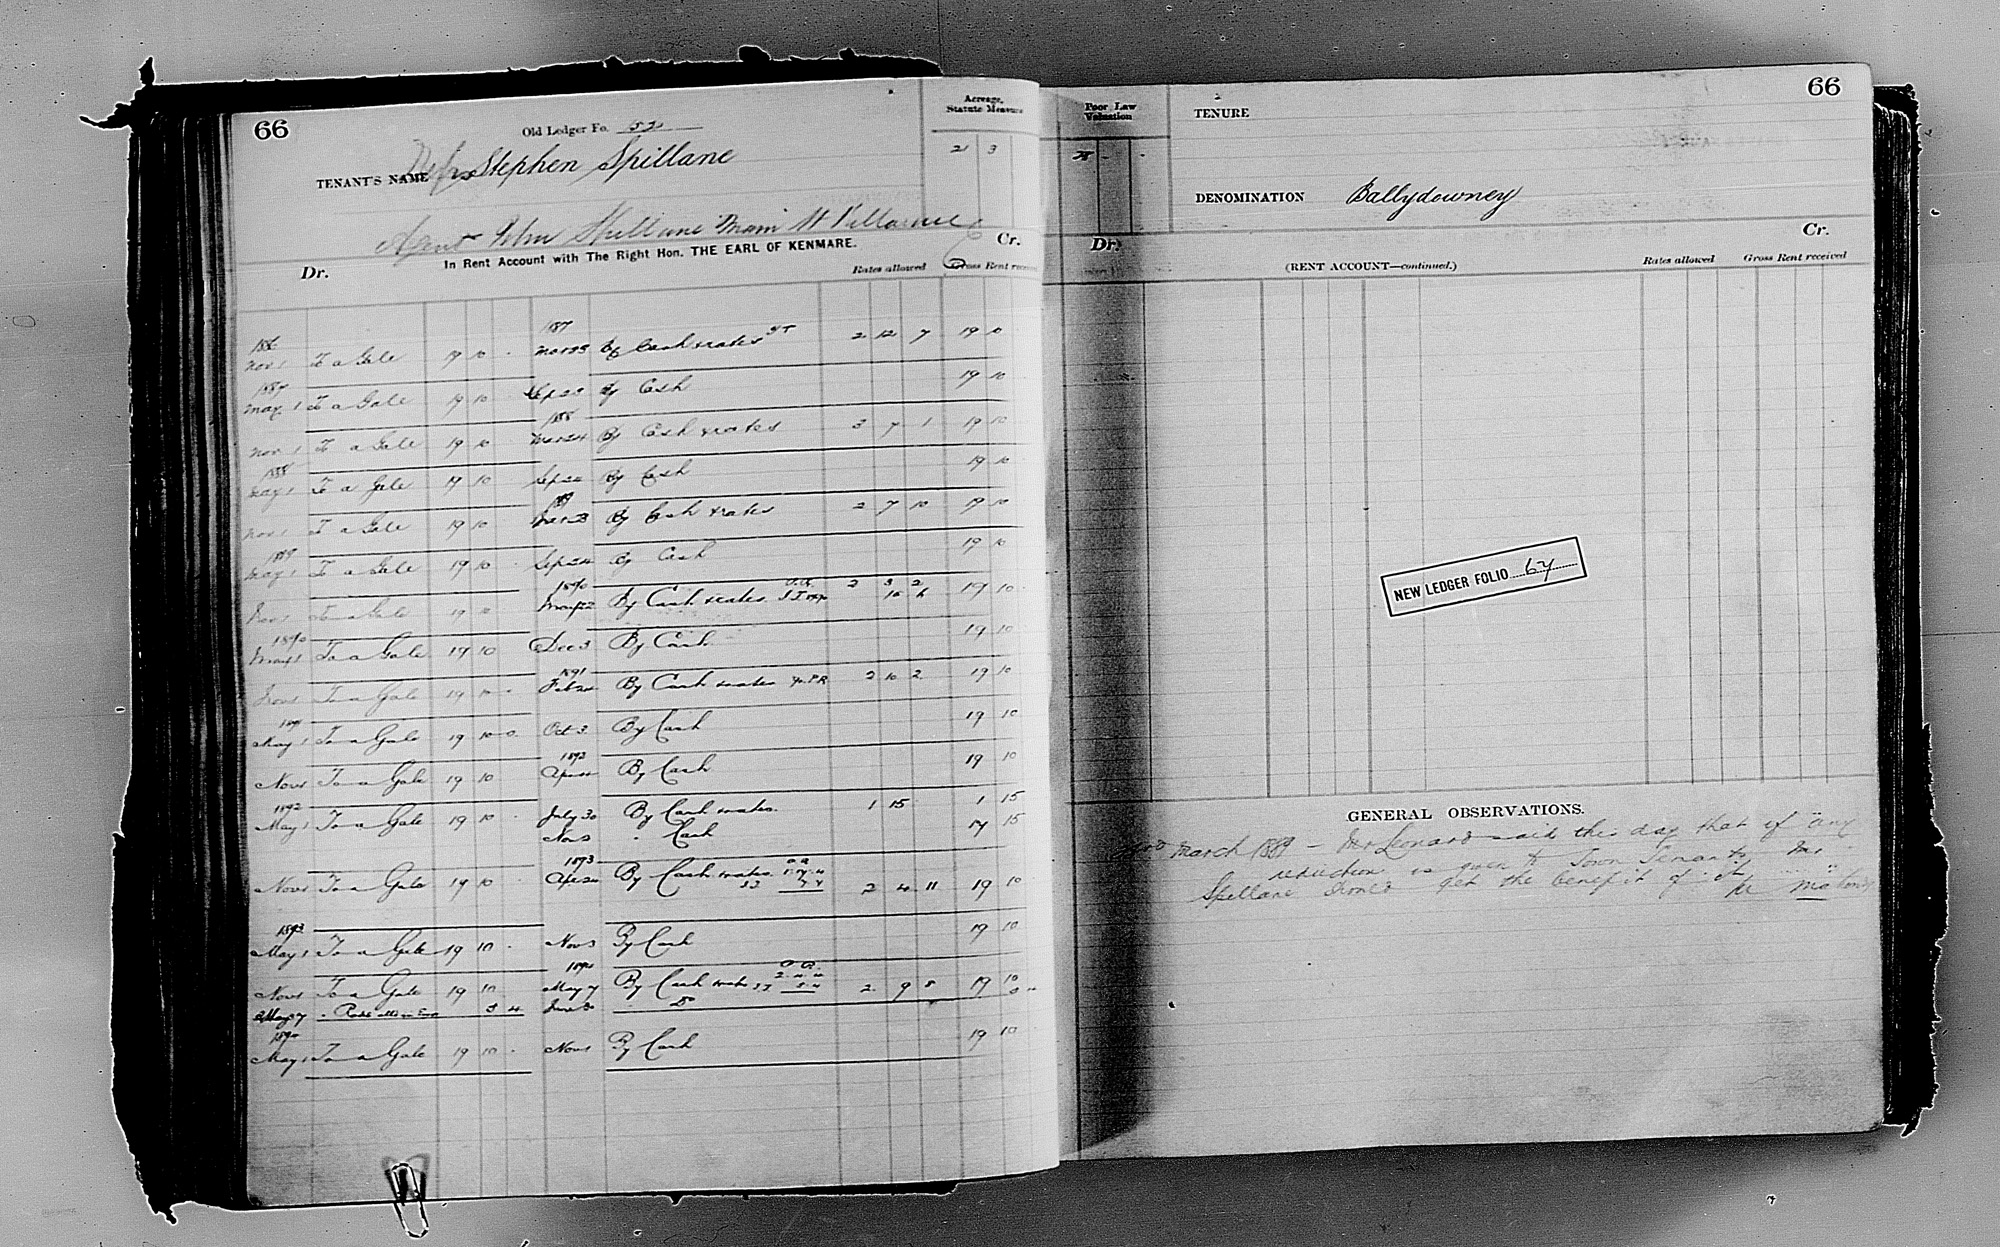 66
Old Ledger Fo. 52
Acreage, Statute Measure
2 3
TENANT'S NAME Stephen Spillane
Agent John Spillane Main St Killarney
In Rent Account with The Right Hon. THE EARL OF KENMARE.
Dr. Cr.
Rates allowed Gross Rent received
1886 1887
Nov 1 To a Gale 19 10 . Mar 23 By Cash & rates 2 12 7 19 10
1887
May 1 To a Gale 19 10 . Sep 23 By Cash 19 10
1888
Nov 1 To a Gale 19 10 Mar 24 By Cash & rates 3 7 1 19 10
1888
May 1 To a Gale 19 10 Sep 24 By Cash 19 10
1889
Nov 1 To a Gale 19 10 Mar 23 By Cash & rates 2 7 10 19 10
1889
May 1 To a Gale 19 10 . Sep 24 By Cash 19 10
1890
Nov 1 To a Gale 19 10 May 22 By Cash & rates 19 10
1890
May 1 To a Gale 19 10 Dec 3 By Cash 19 10
1891
Nov 1 To a Gale 19 10 . Feb 24 By Cash & rates 2 10 2 19 10
1891
May 1 To a Gale 19 10 0 Oct 3 By Cash 19 10
1892
Nov 1 To a Gale 19 10 Apr By Cash 19 10
1892
May 1 To a Gale 19 10 . July 30 By Cash & rates. 1 15 1 15
Nov 3 " Cash 17 15
1893
Nov 1 To a Gale 19 10 . Apr 24 By Cash & rates 2 4 11 19 10
1893
May 1 To a Gale 19 10 . Nov 3 By Cash 19 10
1894
Nov 1 To a Gale 19 10 May 7 By Cash & rates 2 9 8 19 10
May 7 5 4 June Do
1894
May 1 To a Gale 19 10 . Nov By Cash 19 10
66
Poor Law Valuation
TENURE
DENOMINATION Ballydowney
Dr. Cr.
(RENT ACCOUNT—continued.)
Rates allowed Gross Rent received
NEW LEDGER FOLIO 67
GENERAL OBSERVATIONS.
March 1889 - Mr Leonard said this day that if any
reduction is given to Town Tenants, Mr
Spillane get the benefit of it